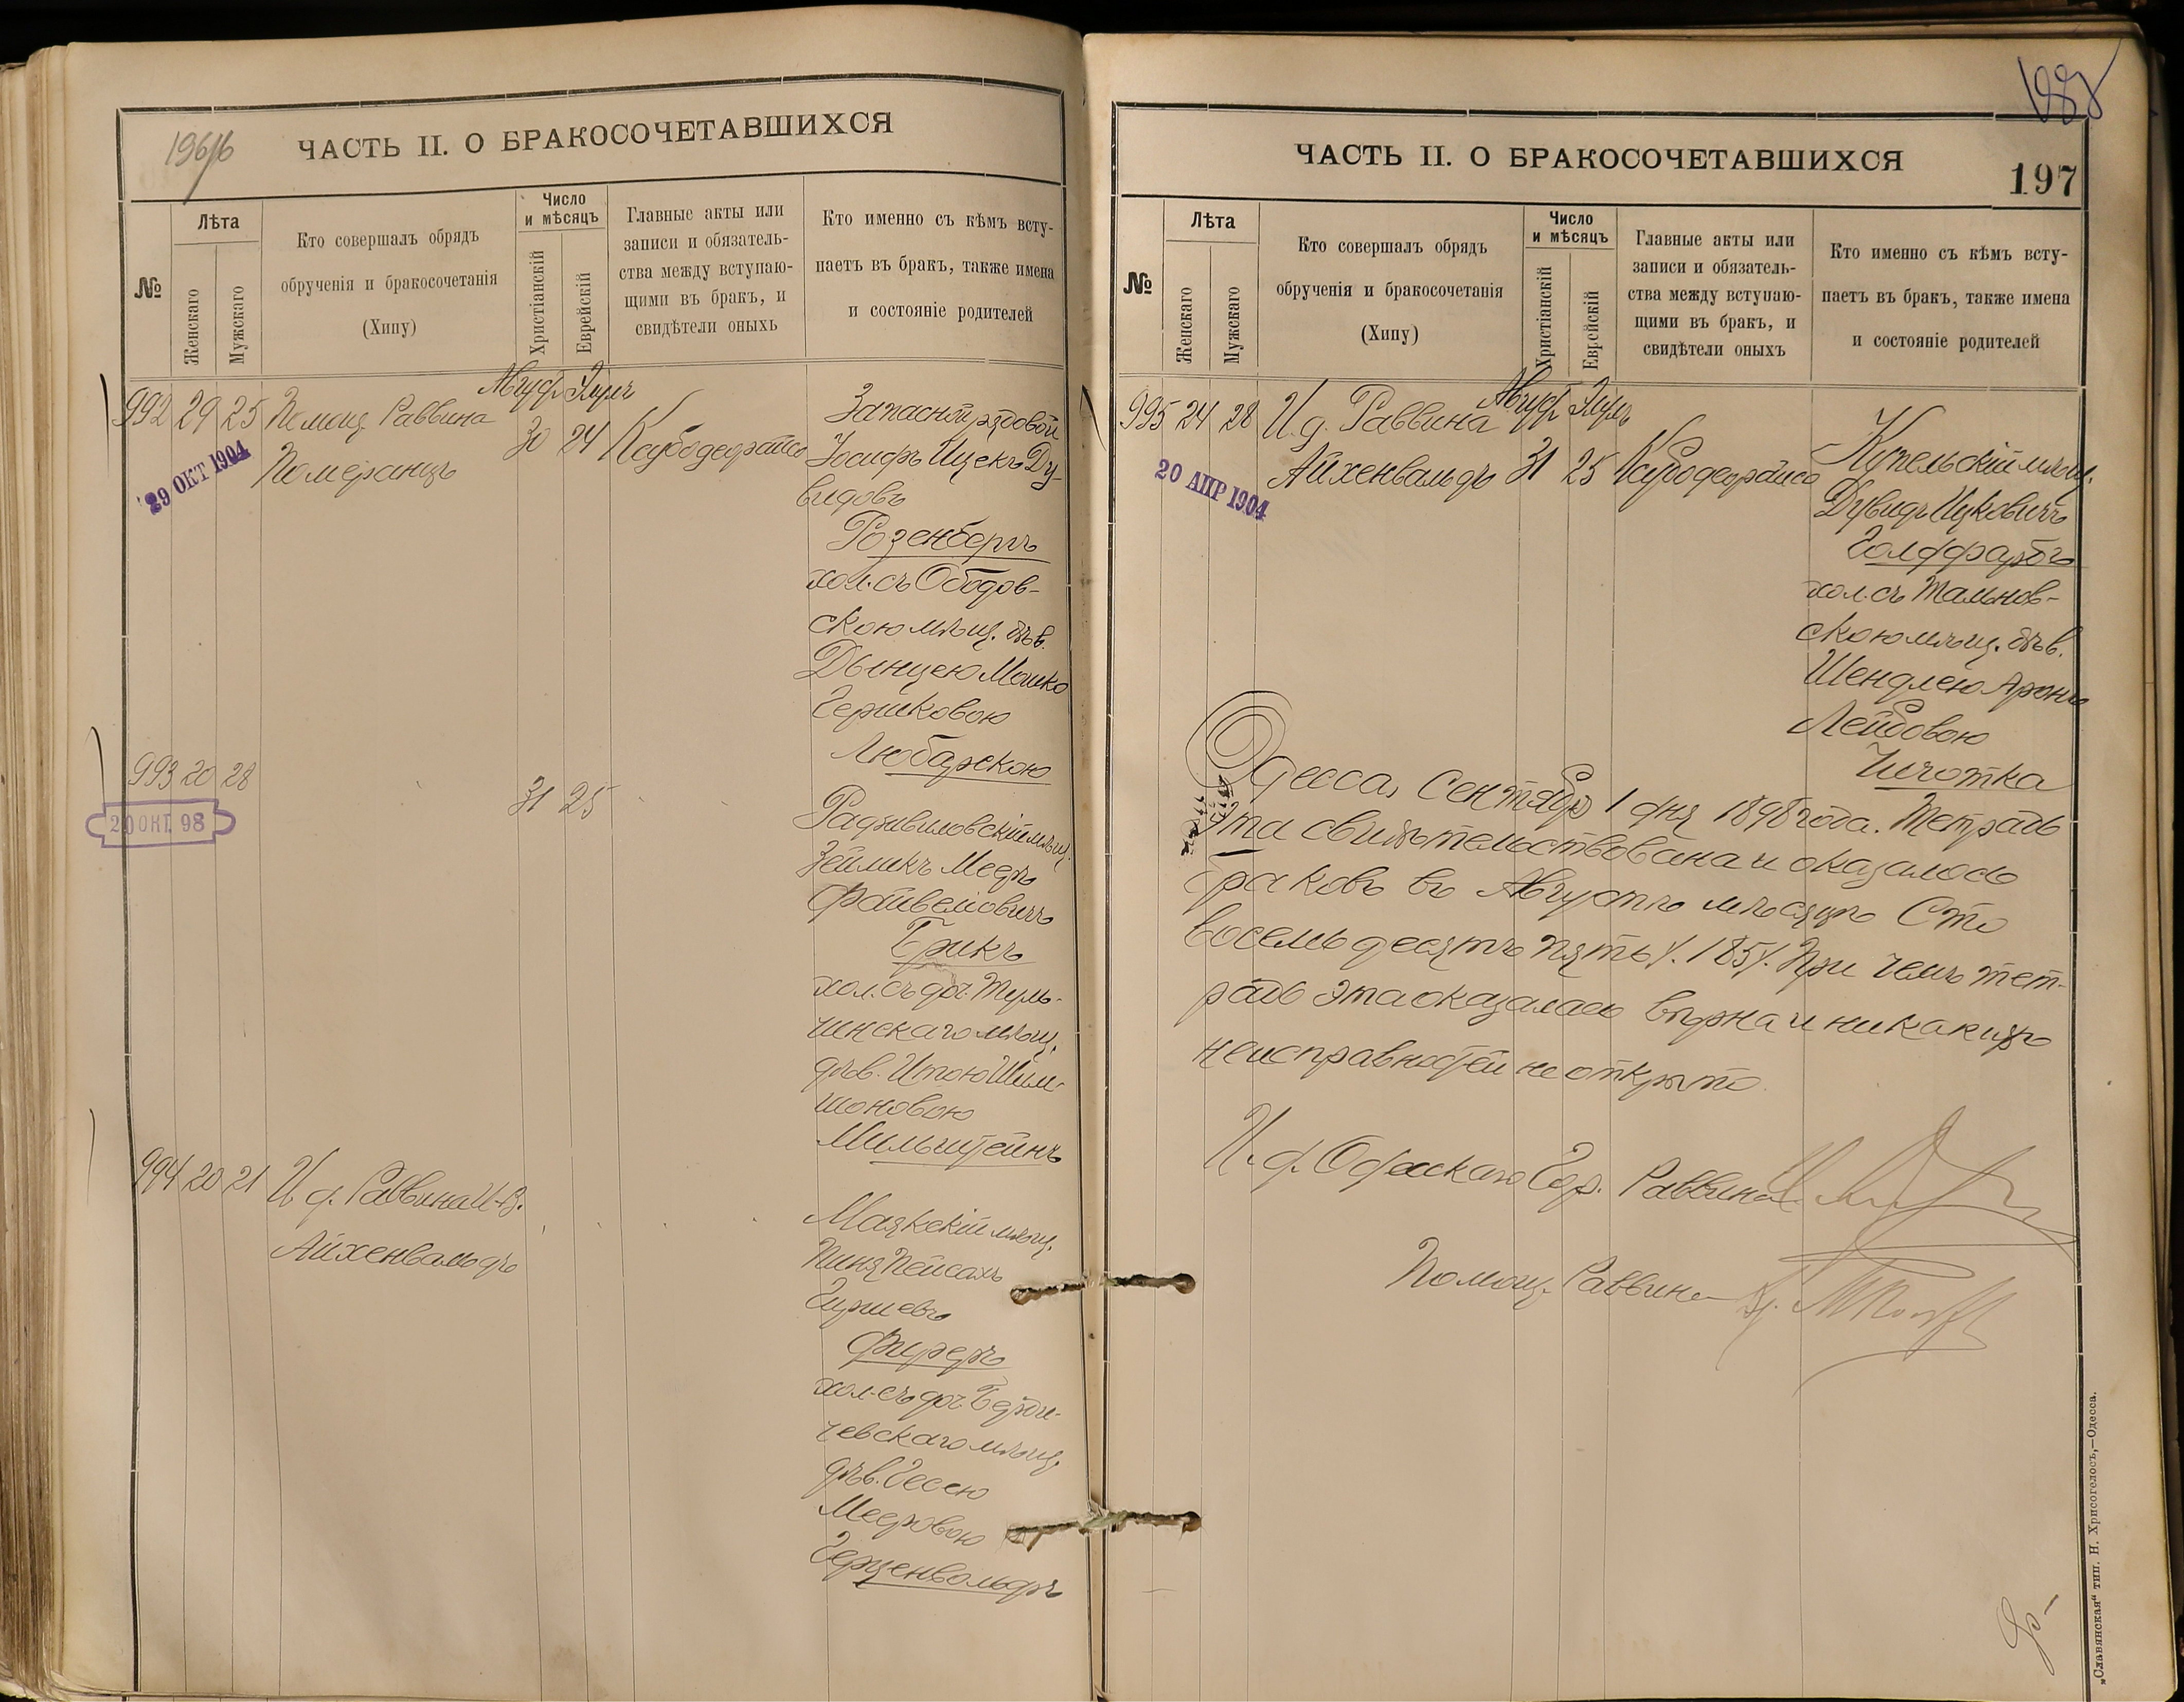 ЧАСТЬ II. О БРАКОСОЧЕТАВШИХСЯ
№
Лѣта
Женскаго
Мужскаго
Кто совершалъ обрядъ
обрученія и бракосочетанія
(Хипу)
Число
и мѣсяцъ
Христіанскій
Еврейскій
Главные акты или
записи и обязатель-
ства между вступаю-
щими въ бракъ, и
свидѣтели оныхъ
Кто именно съ кѣмъ всту-
паетъ въ бракъ, также имена
и состояніе родителей
992 29 25 Помощ. Раввина
Померанцъ
30 24
29 ОКТ 1904
Запасной рядовой
Іосифъ Ицекъ Ду-
видовъ
Розенбергъ
хол. съ Ободов-
скою мѣщ. дѣв.
Дынцею Мошко
Гершковою
Любарскою
993 20 28
31 25
20 ОКТ. 98
Радзивиловскій мѣщ.
Зейликъ Мееръ
Файвелівичъ
Брикъ
хол. съ доч. Туль-
чинскаго мѣщ.
дѣв. Итою Шим-
шоновою
Мильштейнъ
994 20 21 И. д. Раввина
Айхенвальдъ
Маякскій мѣщ.
Пиня Пейсахъ
Гиршевъ
Фиреръ
хол. съ доч. Берди-
чевскаго мѣщ.
дѣв. Гессею
Мееровою
Герценвольфъ
ЧАСТЬ II. О БРАКОСОЧЕТАВШИХСЯ
197
№
Лѣта
Женскаго
Мужскаго
Кто совершалъ обрядъ
обрученія и бракосочетанія
(Хипу)
Число
и мѣсяцъ
Христіанскій
Еврейскій
Главные акты или
записи и обязатель-
ства между вступаю-
щими въ бракъ, и
свидѣтели оныхъ
Кто именно съ кѣмъ всту-
паетъ въ бракъ, также имена
и состояніе родителей
995 24 28 И. д. Раввина
Айхенвальдъ 31 25
20 АПР 1904
Купельскій мѣщ.
Дувидъ Ицковичъ
Голдфарбъ
хол. съ Тальнов-
скою мѣщ. дѣв.
Шендлею Аронъ
Лейбовою
Чичотка
Одесса, Сентября 1 дня 1898 года. Тетрадь
эта свидѣтельствована и оказалось
браковъ въ Августѣ мѣсяцѣ Сто
восемьдесятъ пять /. 185 /. При чемъ тет-
радь эта оказалась вѣрна и никакихъ
неисправностей не открыто.
И. д. Одесскаго Гор. Раввина
Помощ. Раввина
„Славянская“ тип. Н. Хрисогелосъ,—Одесса.